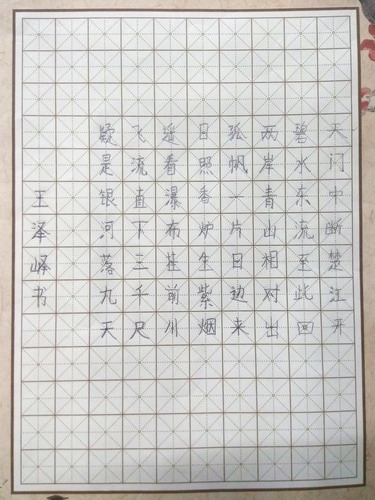 天门中断楚江开
碧水东流至此回
两岸青山相对出
孤帆一片日边来
日照香炉生紫烟
遥看瀑布挂前川
飞流直下三千尺
疑是银河落九天
王泽峄书